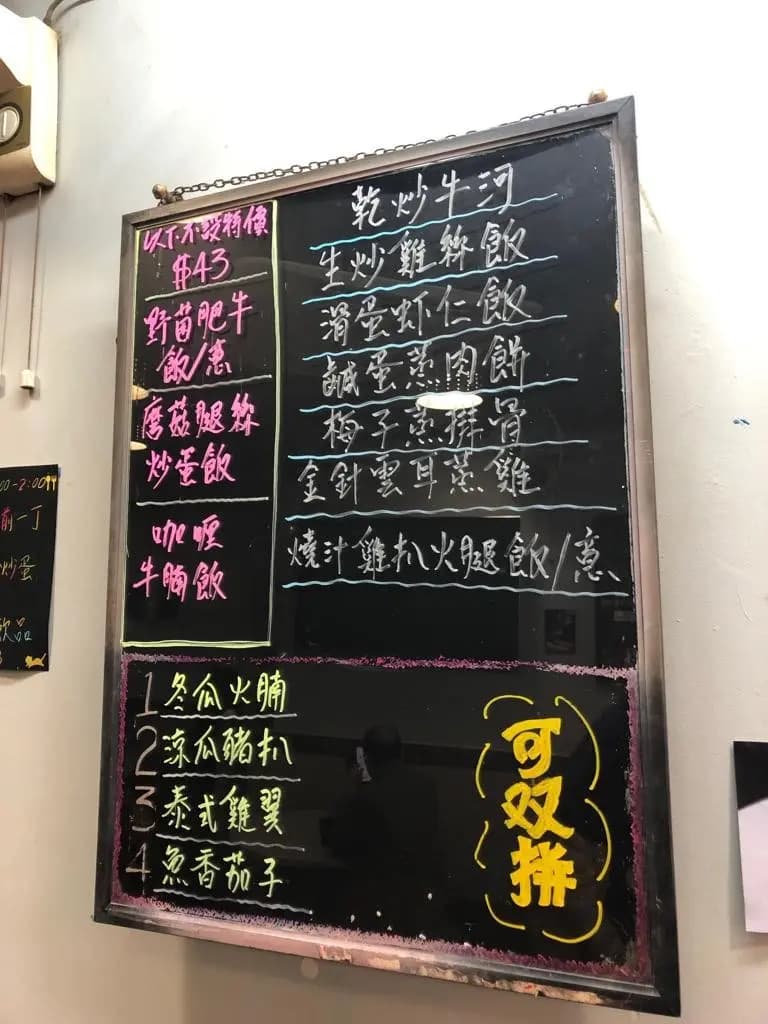 以下不設特價
$43
野菌肥牛
飯/意
磨菇腿絲
炒蛋飯
咖喱
牛腩飯
乾炒牛河
生炒雞絲飯
滑蛋虾仁飯
鹹蛋蒸肉餅
梅子蒸排骨
金針雲耳蒸雞
燒汁雞扒火腿飯/意
1 冬瓜火腩
2 涼瓜豬扒
3 泰式雞翼
4 魚香茄子
可双拼
00-2:00
前一丁
炒蛋
飲品